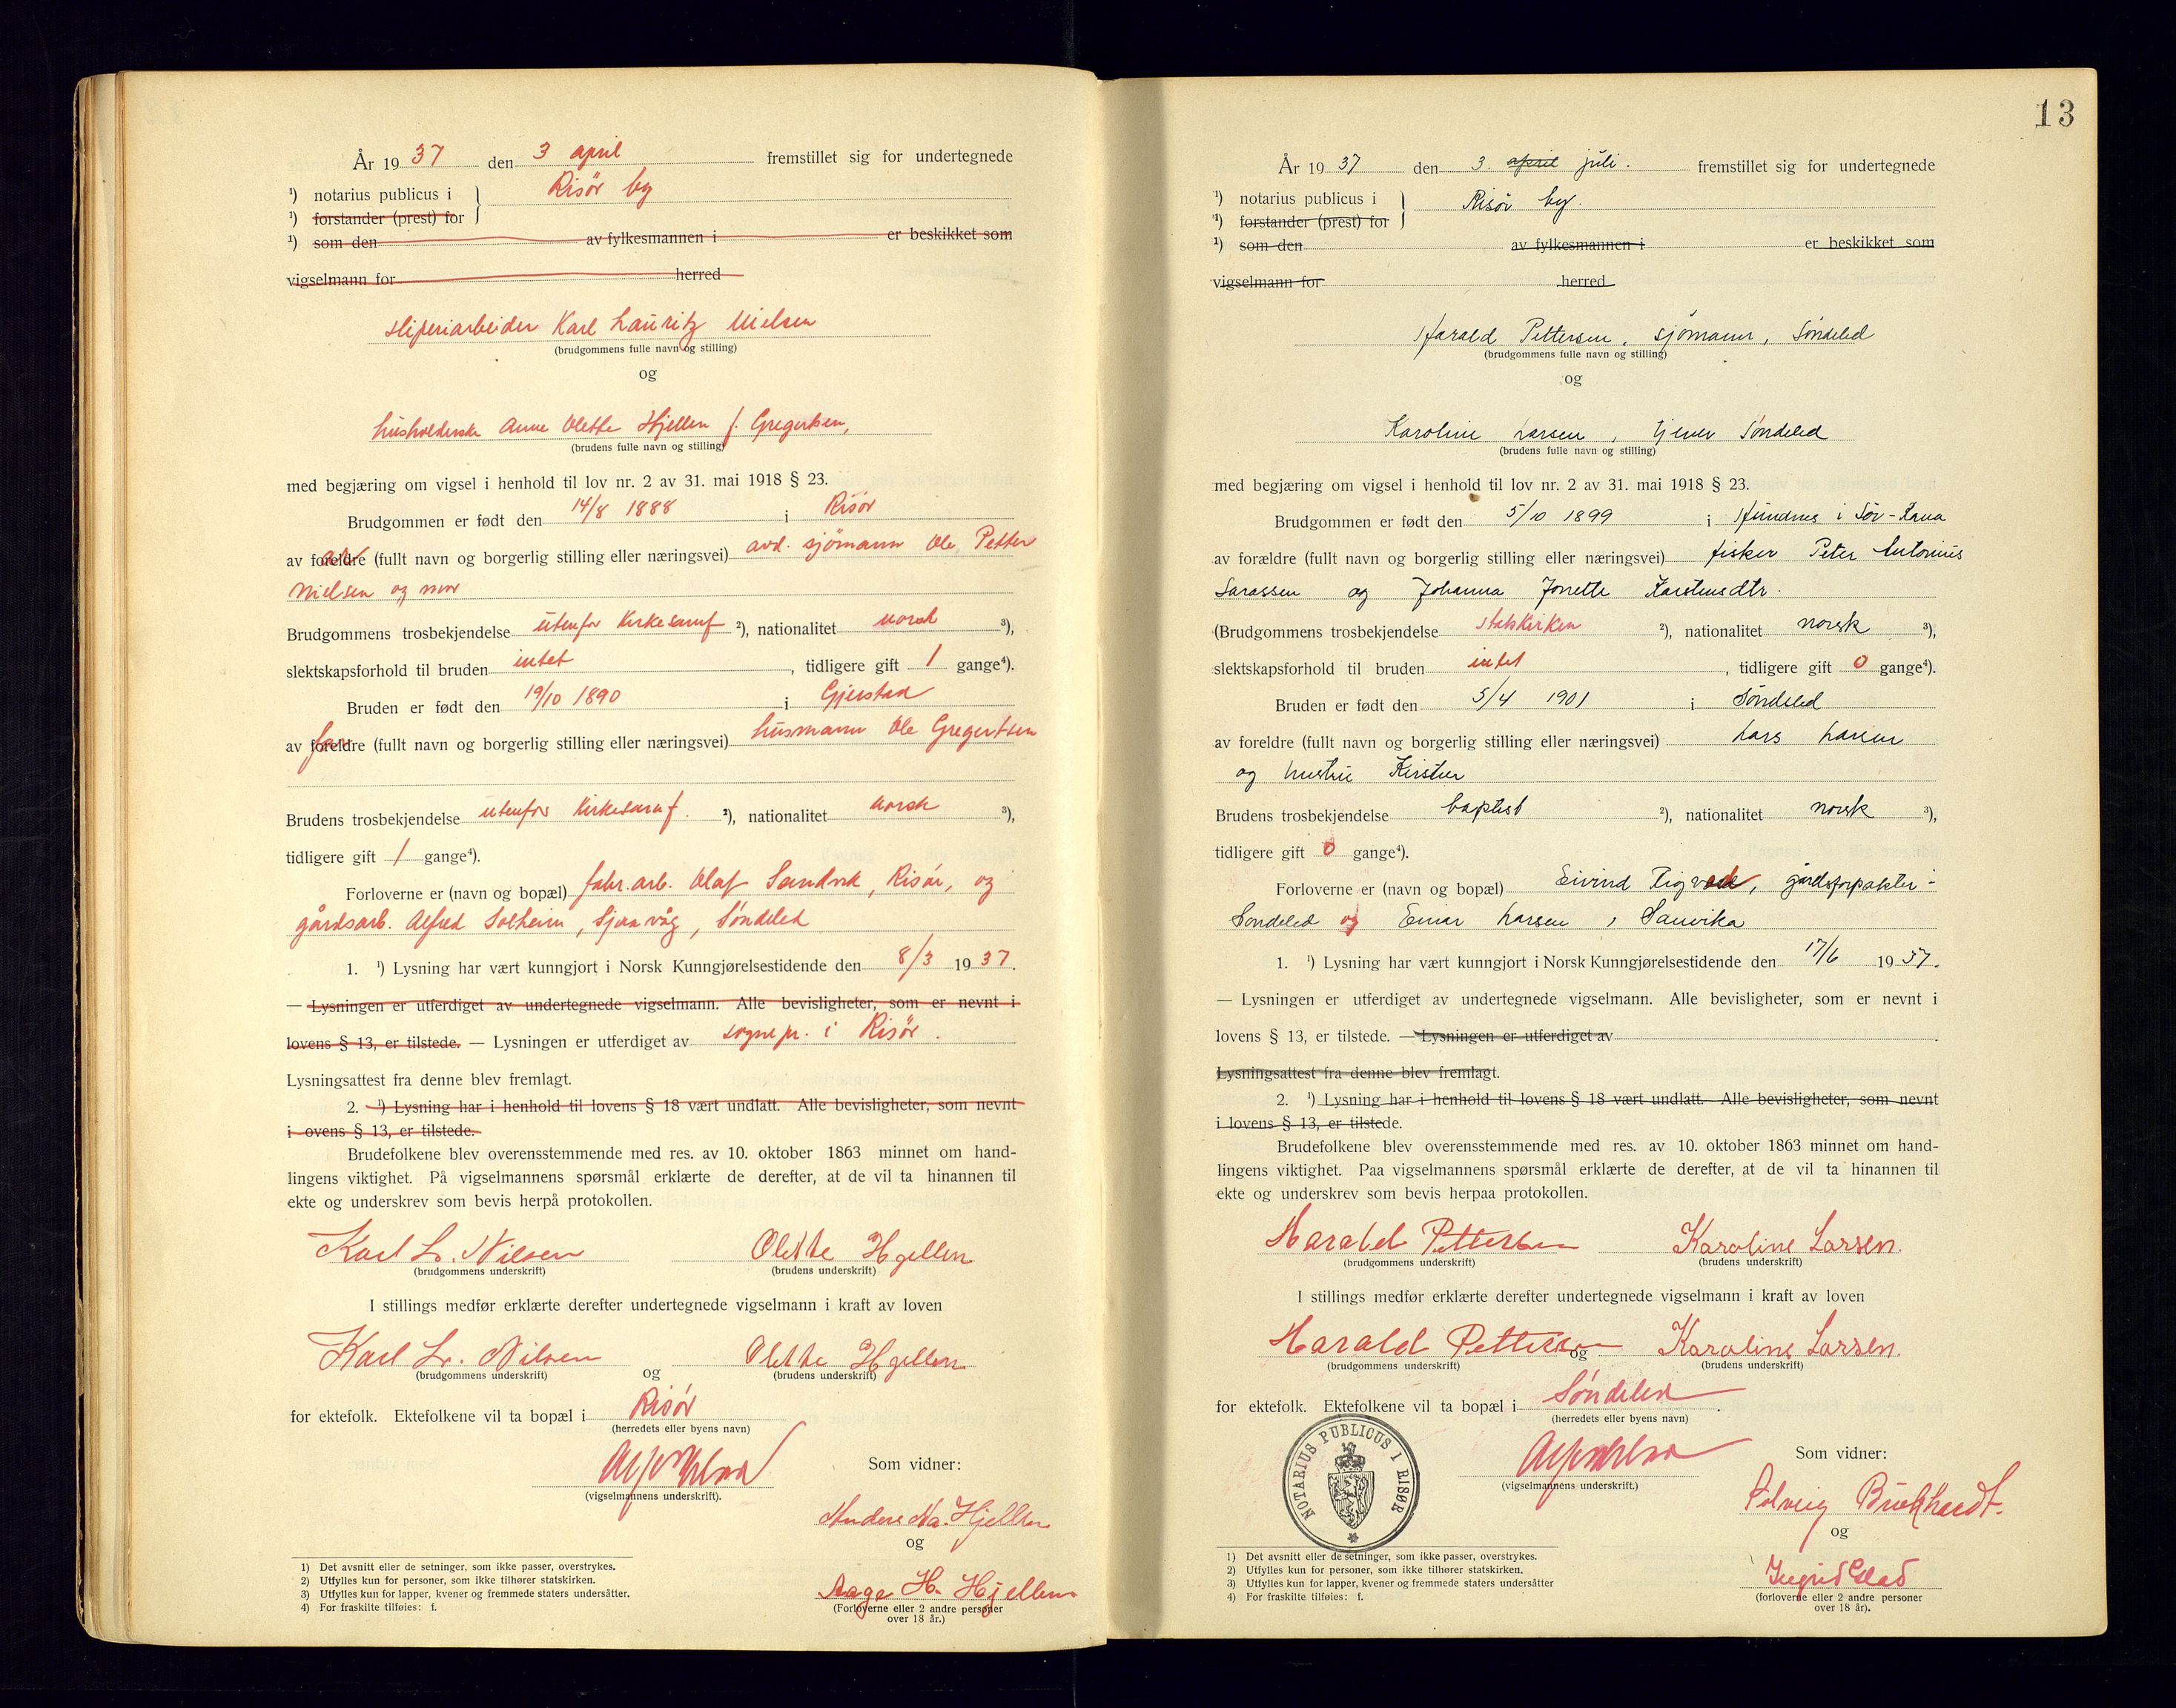 År 19 37 den 3 april fremstillet sig for undertegnede
¹) notarius publicus i } Risör by
¹) forstander (prest) for
¹) som den av fylkesmannen i er beskikket som
vigselmann for herred
sliperiarbeider Karl Lauritz Nielsen
(brudgommens fulle navn og stilling)
og
husholderske Anne Olette Hjellen f. Gregertsen,
(brudens fulle navn og stilling)
med begjæring om vigsel i henhold til lov nr. 2 av 31. mai 1918 § 23.
Brudgommen er født den 14/8 1888 i Risör
av foreldre (fullt navn og borgerlig stilling eller næringsvei) avd. sjömann Ole Petter
Nielsen og mor
Brudgommens trosbekjendelse utenfor kirkesamf ²), nationalitet norsk ³),
slektskapsforhold til bruden intet , tidligere gift 1 gange⁴).
Bruden er født den 19/10 1890 i Gjerstad
av foreldre (fullt navn og borgerlig stilling eller næringsvei) husmann Ole Gregertsen
Brudens trosbekjendelse utenfor kirkesamf. ²), nationalitet norsk ³),
tidligere gift 1 gange⁴).
Forloverne er (navn og bopæl) fabr. arb. Olaf Sandvik, Risör, og
gårdsarb. Alfred Solheim, , Søndeled
1. ¹) Lysning har vært kunngjort i Norsk Kunngjørelsestidende den 8/3 19 37.
— Lysningen er utferdiget av undertegnede vigselmann. Alle bevisligheter, som er nevnt i
lovens § 13, er tilstede. — Lysningen er utferdiget av sognepr. i Risör.
Lysningsattest fra denne blev fremlagt.
2. ¹) Lysning har i henhold til lovens § 18 vært undlatt. Alle bevisligheter, som nevnt
i ovens § 13, er tilstede.
Brudefolkene blev overensstemmende med res. av 10. oktober 1863 minnet om hand-
lingens viktighet. På vigselmannens spørsmål erklærte de derefter, at de vil ta hinannen til
ekte og underskrev som bevis herpå protokollen.
Karl L. Nilsen Olette Hjellen
(brudgommens underskrift) (brudens underskrift)
I stillings medfør erklærte derefter undertegnede vigselmann i kraft av loven
Karl L. Nilsen Olette Hjellen
(brudgommens underskrift) og (brudens underskrift)
for ektefolk. Ektefolkene vil ta bopæl i Risör
(herredets eller byens navn)
Som vidner:
(vigselmannens underskrift).
Anders Ma. Hjellen
og
Aage H. Hjellen
(Forloverne eller 2 andre personer
over 18 år.)
1) Det avsnitt eller de setninger, som ikke passer, overstrykes.
2) Utfylles kun for personer, som ikke tilhører statskirken.
3) Utfylles kun for lapper, kvener og fremmede staters undersåtter.
4) For fraskilte tilføies: f.
13
År 19 37 den 3. april juli. fremstillet sig for undertegnede
¹) notarius publicus i } Risör by.
¹) forstander (prest) for
¹) som den av fylkesmannen i er beskikket som
vigselmann for herred
Harald Pettersen, sjömann, Söndeled
(brudgommens fulle navn og stilling)
og
Karoline Larsen, tjener Söndeled
(brudens fulle navn og stilling)
med begjæring om vigsel i henhold til lov nr. 2 av 31. mai 1918 § 23.
Brudgommen er født den 5/10 1899 i Hundnes i Sör-Rana
av forældre (fullt navn og borgerlig stilling eller næringsvei) fisker Peter Antonius
Larassen og Johanna Jonette Karstensdtr.
(Brudgommens trosbekjendelse statskirken ²), nationalitet norsk ³),
slektskapsforhold til bruden intet , tidligere gift 0 gange⁴).
Bruden er født den 5/4 1901 i Söndeled
av foreldre (fullt navn og borgerlig stilling eller næringsvei) Lars Larsen
og hustru Kirsten
Brudens trosbekjendelse baptist ²), nationalitet norsk ³),
tidligere gift 0 gange⁴).
Forloverne er (navn og bopæl) Eivind Rigvad, gårdsforpakter -
Söndeled og Einar Larsen, Sanvika
1. ¹) Lysning har vært kunngjort i Norsk Kunngjørelsestidende den 17/6 19 37.
— Lysningen er utferdiget av undertegnede vigselmann. Alle bevisligheter, som er nevnt i
lovens § 13, er tilstede. — Lysningen er utferdiget av
Lysningsattest fra denne blev fremlagt.
2. ¹) Lysning har i henhold til lovens § 18 vært undlatt. Alle bevisligheter, som nevnt
i lovens § 13, er tilstede.
Brudefolkene blev overensstemmende med res. av 10. oktober 1863 minnet om hand-
lingens viktighet. Paa vigselmannens spørsmål erklærte de derefter, at de vil ta hinannen til
ekte og underskrev som bevis herpaa protokollen.
Harald Pettersen Karoline Larsen.
(brudgommens underskrift) (brudens underskrift)
I stillings medfør erklærte derefter undertegnede vigselmann i kraft av loven
Harald Pettersen og Karoline Larsen.
(brudgommens underskrift) (brudens underskrift)
for ektefolk. Ektefolkene vil ta bopæl i Söndeled.
(herredets eller byens navn)
NOTARIUS PUBLICUS I RISØR
Som vidner:
(vigselmannens underskrift.)
Solveig Burkhardt.
og
Ingrid Glad
(forloverne eller 2 andre personer
over 18 år).
1) Det avsnitt eller de setninger, som ikke passer, overstrykes.
2) Utfylles kun for personer, som ikke tilhører statskirken.
3) Utfylles kun for lapper, kvener og fremmede staters undersåtter
4) For fraskilte tilføies: f.